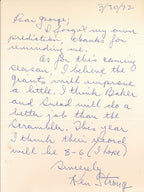 3/30/72
Dear George,
I forgot my own
prediction, thanks for
reminding me.
As for this coming
season, I believe the
Giants will improve
a little. I think Baker
and Snead will do a
better job than the
Scrambler. This year
I think their record
will be 8-6 (I hope)
Sincerely
Ken Strong